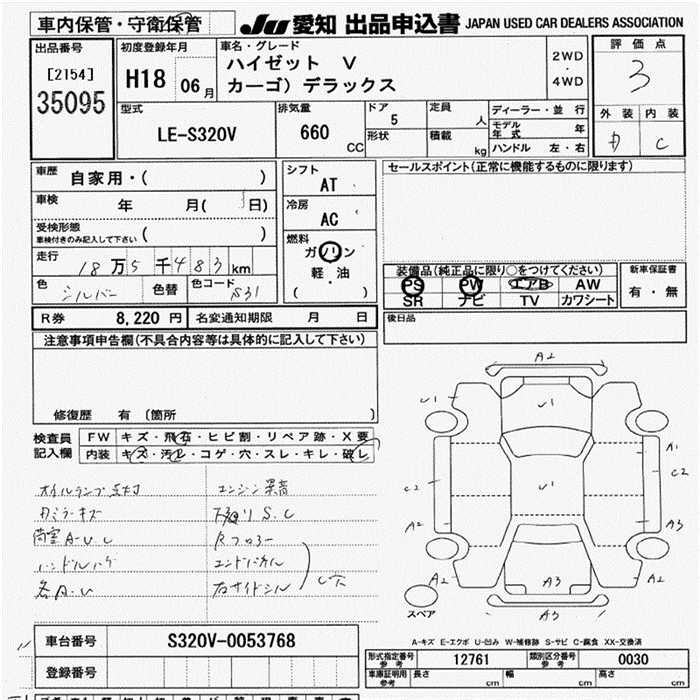 車内保管・守衛保管 JU 愛知 出品申込書 JAPAN USED CAR DEALERS ASSOCIATION
出品番号 初度登録年月 車名・グレード 評価点
[2154] H18 06月 ハイゼット V 2WD・4WD 3
35095 カーゴ) デラックス
型式 排気量 ドア 定員 ディーラー・並行 外装 内装
LE-S320V 660 CC 5 人 モデル年式 年 C
形状 積載 kg ハンドル 左・右
車歴 自家用・( ) シフト AT セールスポイント(正常に機能するものに限ります)
車検 年 月( 日) 冷房 AC
受検形態 ( )
車検付きのみ記入して下さい
燃料 ガソリン
走行 18万5千483km 軽・油
( )
色 シルバー 色替 色コード S31
装備品(純正品に限り○をつけてください) 新車保証書
PS PW エアB AW 有・無
SR ナビ TV カワシート
R券 8,220円 名変通知期限 月 日 後日品
注意事項申告欄(不具合内容等は具体的に記入して下さい)
修復歴 有 〔箇所 〕
検査員 FW キズ・飛石・ヒビ割・リペア跡・X要
記入欄 内装 キズ・汚レ・コゲ・穴・スレ・キレ・破レ
オイルランプ点灯 エンジン異音
下廻りS.C
荷室A.U.C Rフロアー
ハンドルハゲ エンドパネル
各A.U 右サイドシル
C穴
A2
U1 U1
A1
C2 U1 C2
A2 A3
A2 A3 A2
スペア A3
A-キズ E-エクボ U-凹み W-補修跡 S-サビ C-腐食 XX-交換済
車台番号 S320V-0053768
登録番号
形式指定番号 参考 12761 類別区分番号 参考 0030
車庫証明用 参考 長さ cm 幅 cm 高さ cm